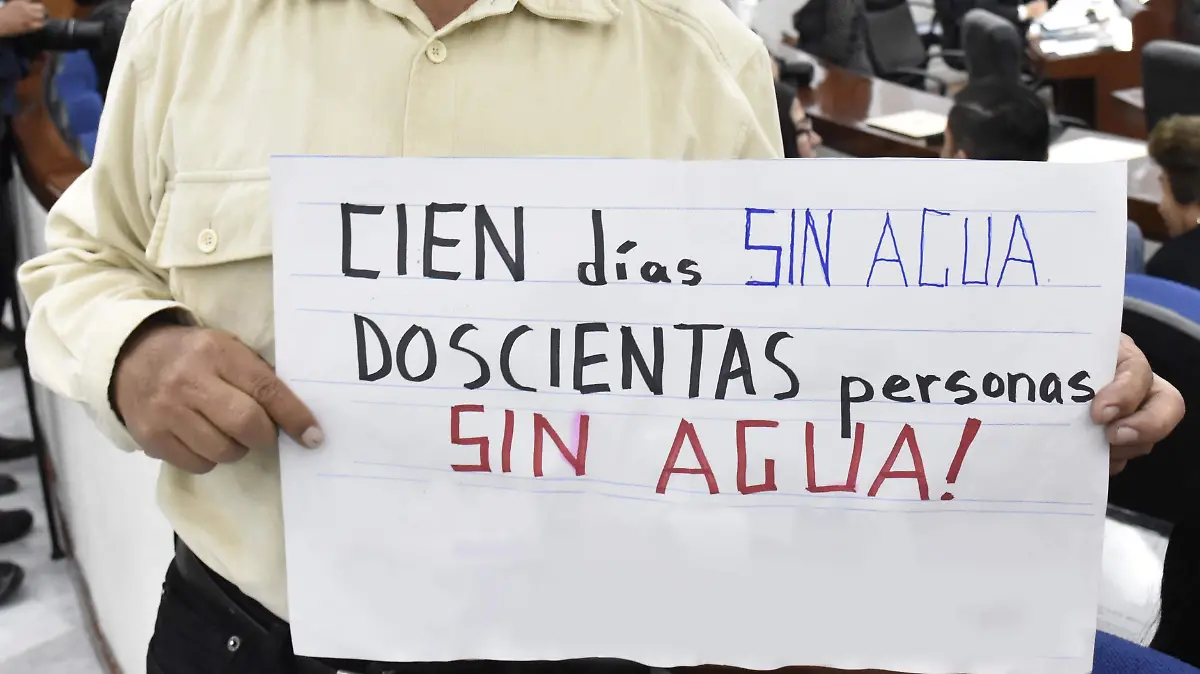 CIEN días SIN AGUA
DOSCIENTAS personas
SIN AGUA!